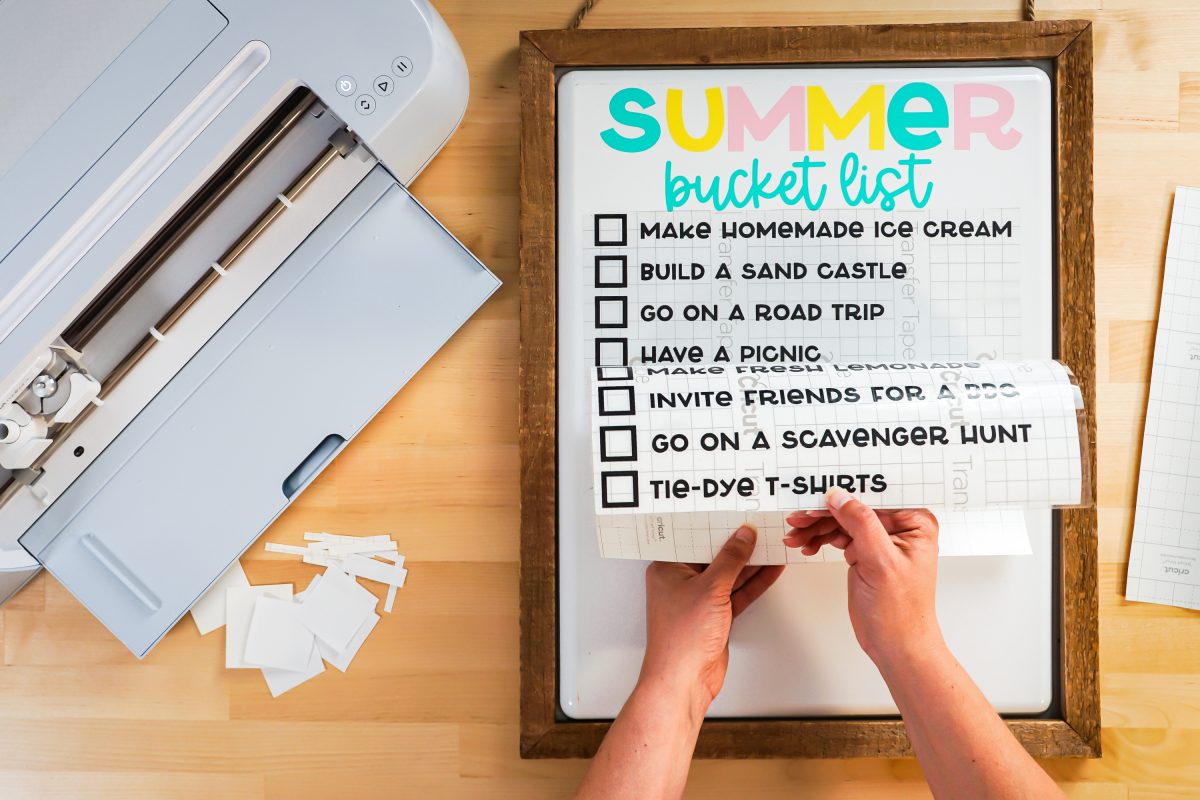 SUMMER
bucket list
MAKE HOMEMADE ICE CREAM
BUILD A SAND CASTLE
GO ON A ROAD TRIP
HAVE A PICNIC
MAKE FRESH LEMONADE
INVITE FRIENDS FOR A BBQ
GO ON A SCAVENGER HUNT
TIE-DYE T-SHIRTS
Transfer Tape
Transfer Tape
cricut
cricut
Tran
cricut.
cricut